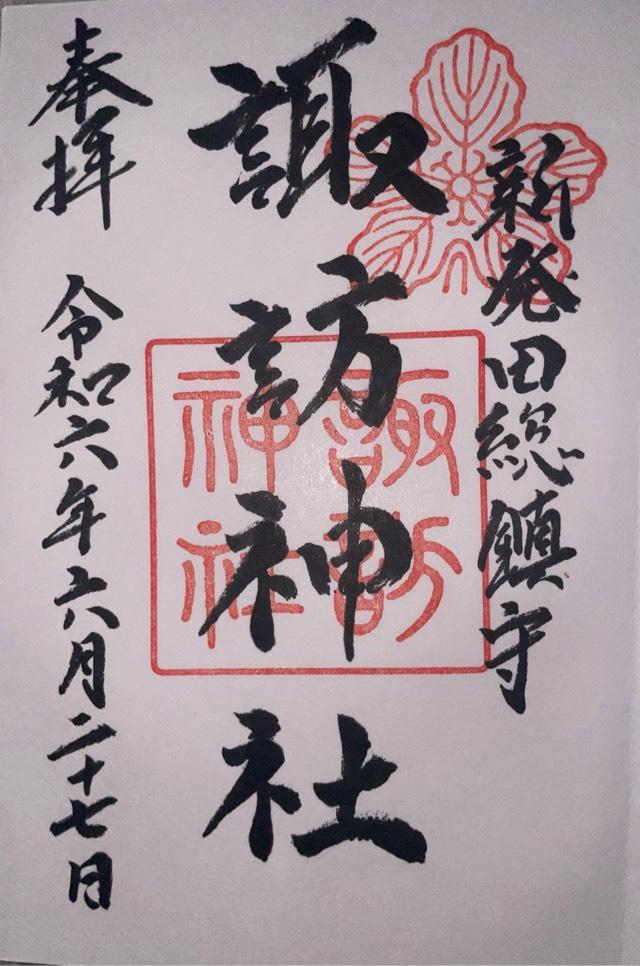 新発田総鎮守
諏訪神社
諏訪
神社
奉拝 令和六年六月二十七日